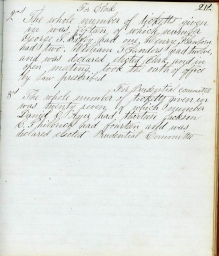 For Clerk 211
2d The whole number of tickets given
in was fifteen of which number
George S. had one, Henry
had two. William F. Sanders had twelve
and was declared elected Clerk and in
open meeting took the oath of office
by law prescribed
For Prudential Committee
3d The whole number of tickets given in
was twenty seven of which number
David C. Dyer had, Martin Jackson
C. F. had fourteen and was
declared elected Prudential Committee